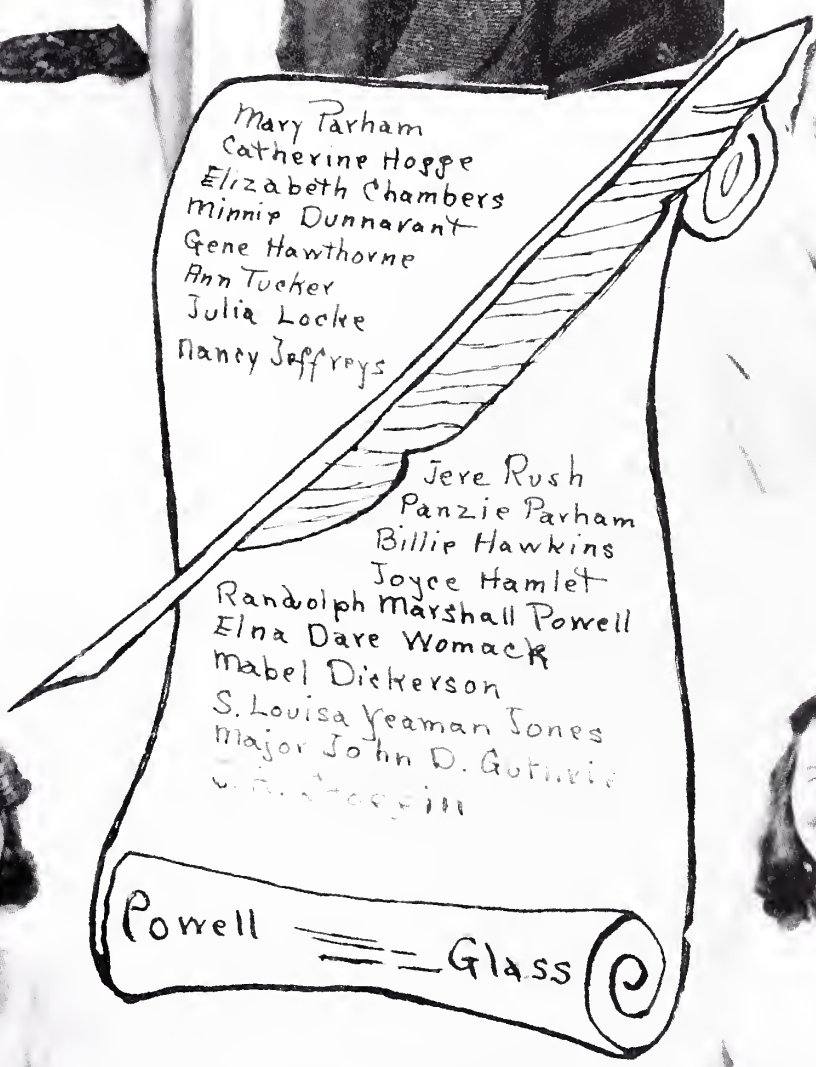 Mary Parham
Catherine Hogge
Elizabeth Chambers
Minnie Dunnavant
Gene Hawthorne
Ann Tucker
Julia Locke
Nancy Jeffreys
Jere Rush
Panzie Parham
Billie Hawkins
Joyce Hamlet
Randolph Marshall Powell
Elna Dare Womack
Mabel Dickerson
S. Louisa Yeaman Jones
Major John D. Guthrie
Powell Glass